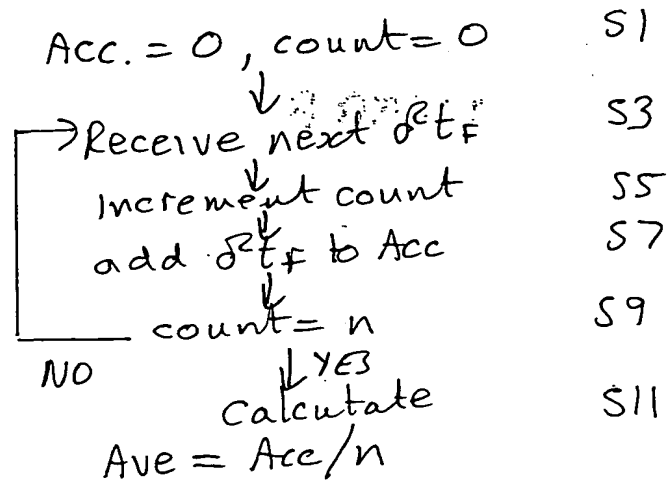 Acc. = 0, count = 0 S1
Receive next δ²t_F S3
Increment count S5
add δ²t_F to Acc S7
count = n S9
NO
YES
Calculate S11
Ave = Acc/n